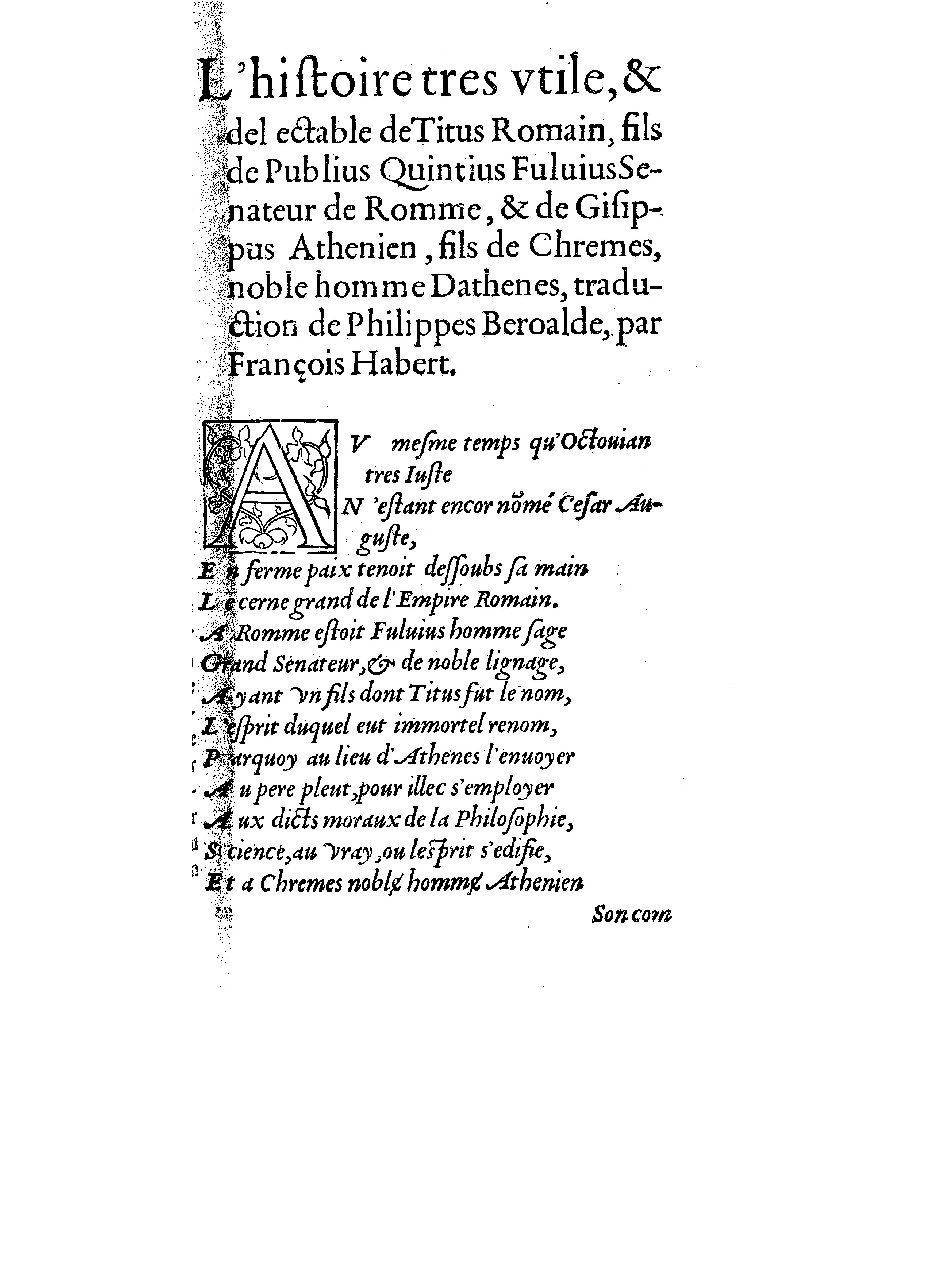 L'hiſtoire tres vtile, &
delectable de Titus Romain, fils
de Publius Quintius Fuluius Se-
nateur de Romme, & de Giſip-
pus Athenien, fils de Chremes,
noble homme Dathenes, tradu-
ction de Philippes Beroalde, par
François Habert.
AV meſme temps qu'Octouian
tres Iuſte
N'eſtant encor nõmé Ceſar Au-
guſte,
En ferme paix tenoit deſſoubs ſa main
Le cerne grand de l'Empire Romain.
A Romme eſtoit Fuluius homme ſage
Grand Senateur, & de noble lignage,
Ayant vn fils dont Titus fut le nom,
L'eſprit duquel eut immortel renom,
Parquoy au lieu d'Athenes l'enuoyer
Au pere pleut, pour illec s'employer
Aux dicts moraux de la Philoſophie,
Science, au vray, ou leſprit s'edifie,
Et a Chremes noble homme Athenien
Son com